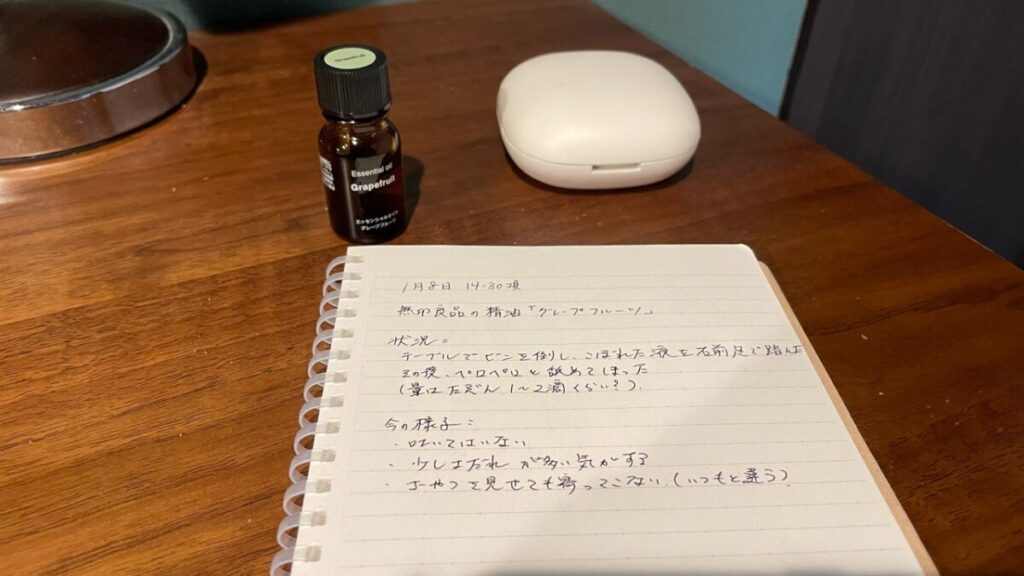 Grapefruit
Essential oil
Grapefruit
エッセンシャルオイル
グレープフルーツ
1月8日 14:30頃
無印良品の精油「グレープフルーツ」
状況。
テーブルでビンを倒し、こぼれた液を右前足で踏んだ
その後、ペロペロと舐めてしまった
(量はたぶん1~2滴くらい?)。
今の様子:
・吐いてはいない
・少しよだれが多い気がする
・おやつを見せても寄ってこない。(いつもと違う)